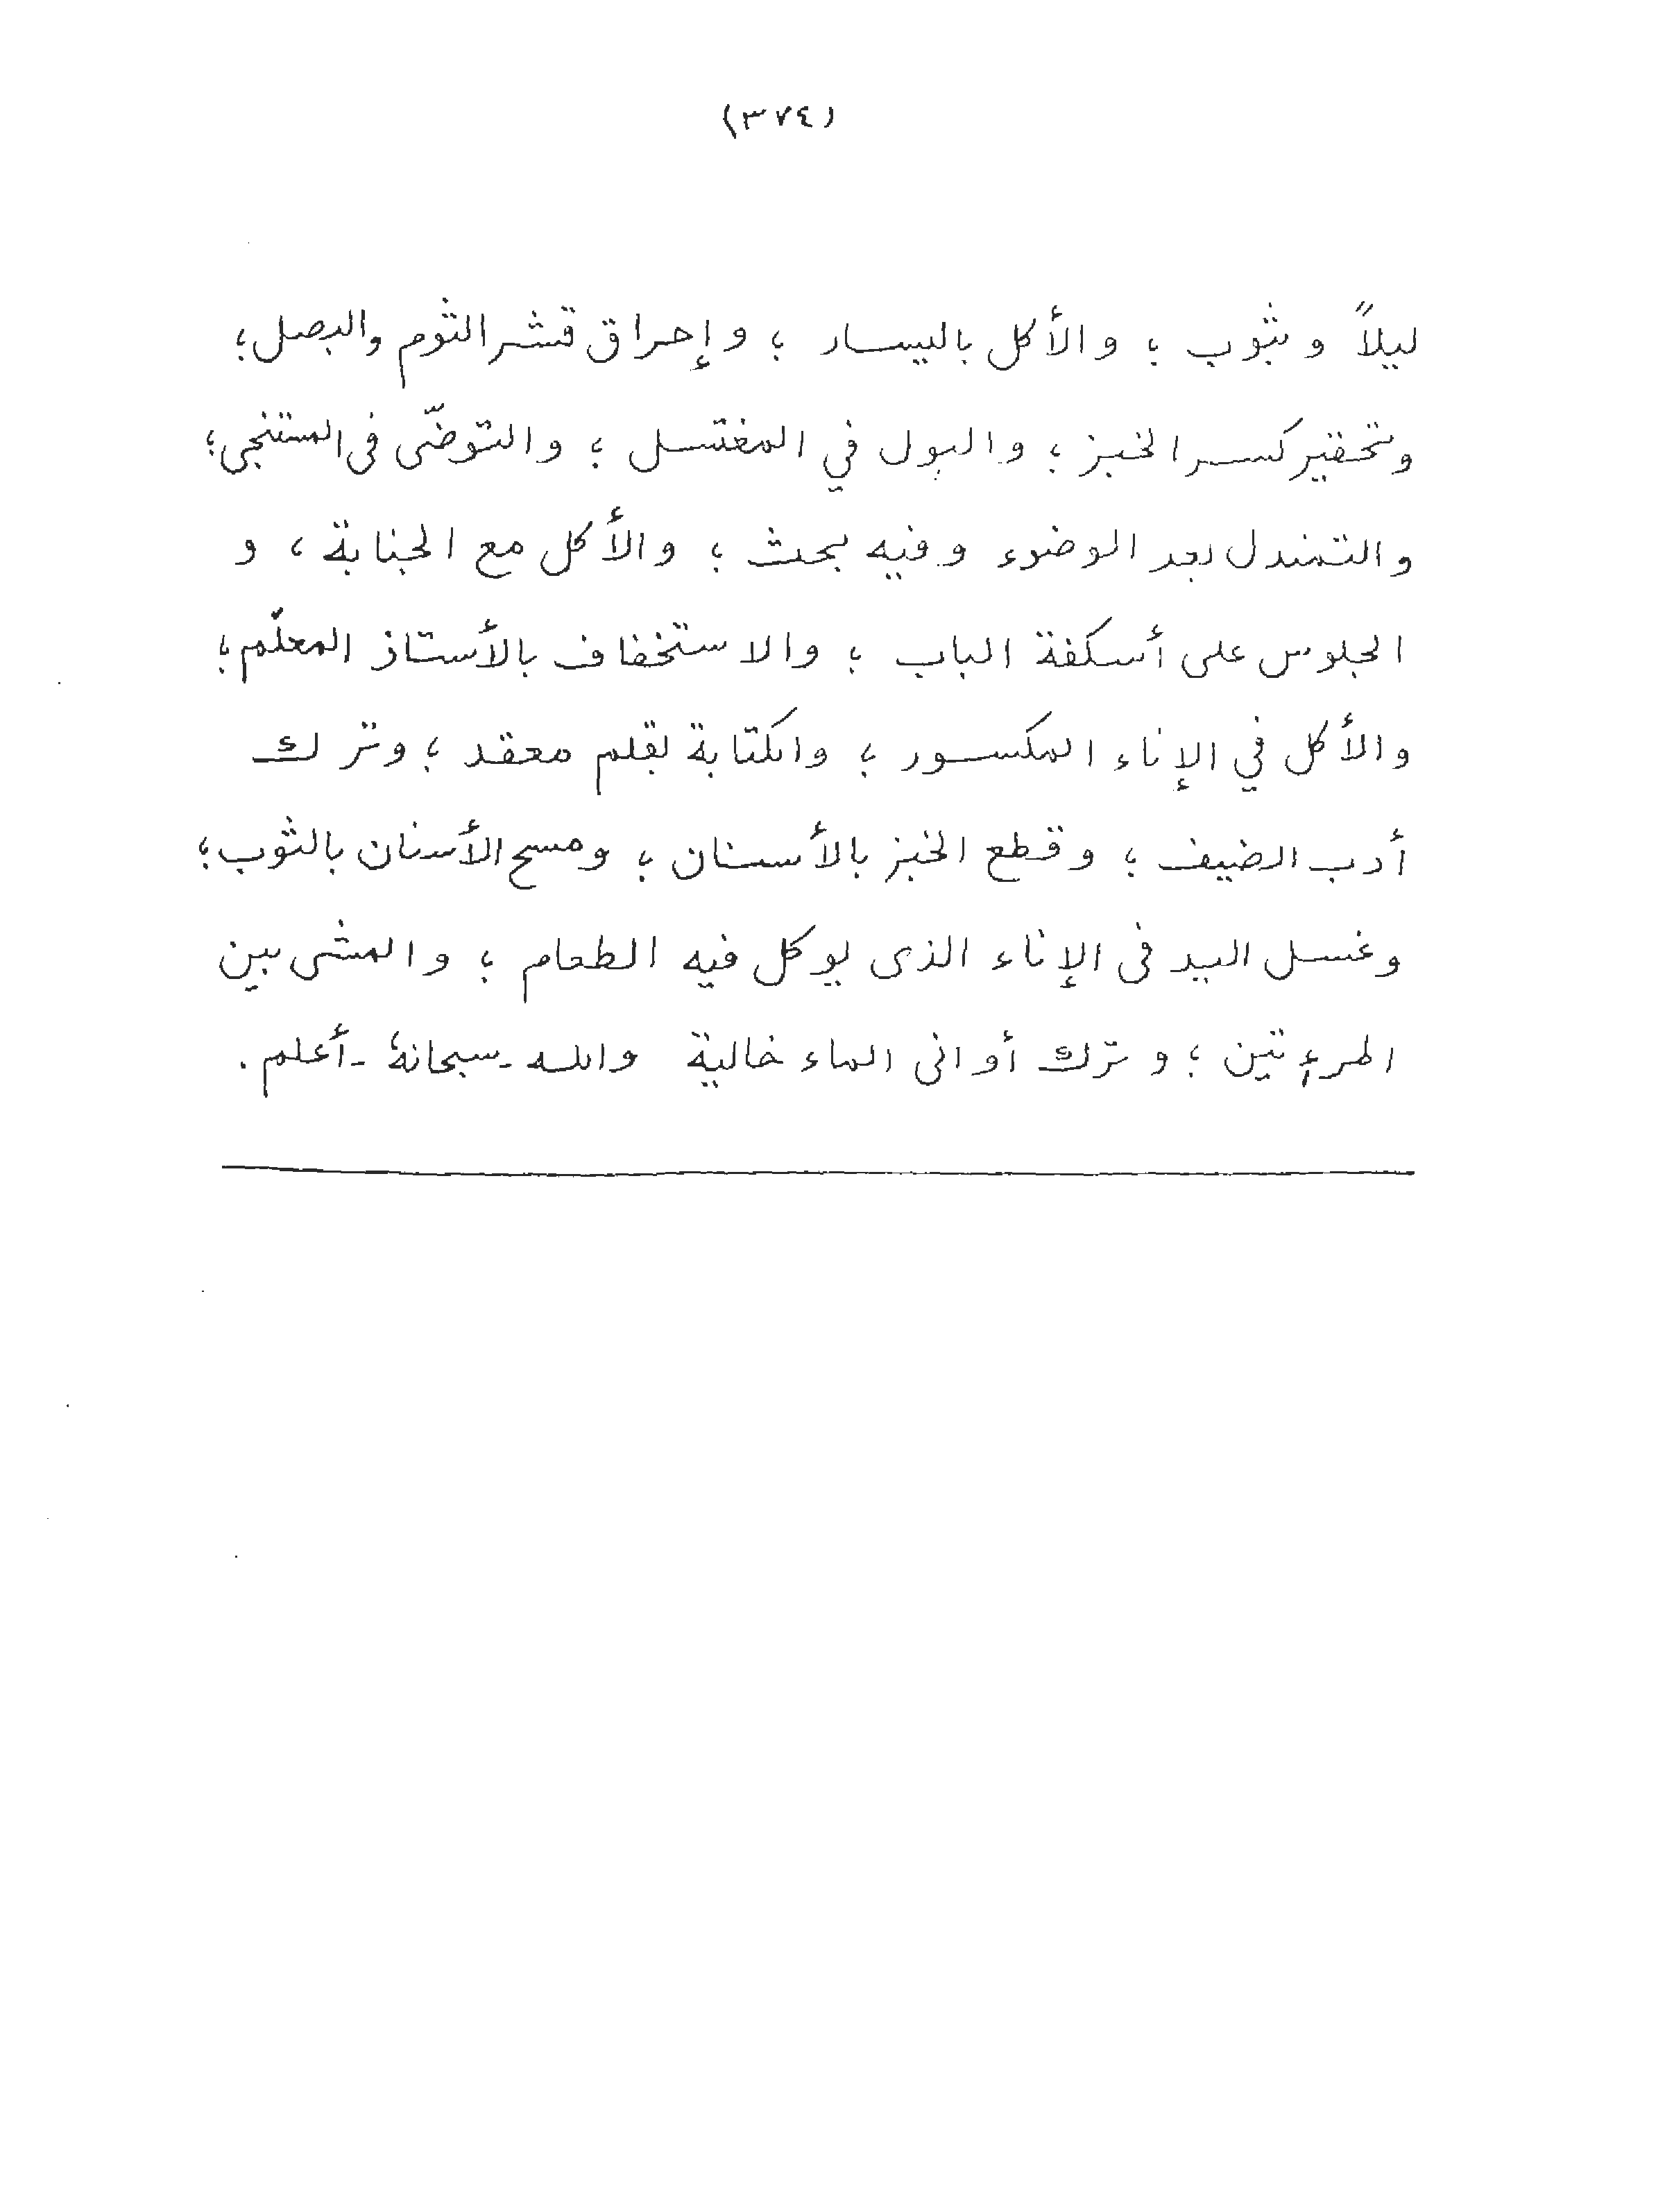 (٣٧٤)
ليلاً وبثوب ؛ والأكل باليسار ؛ وإحراق قشر الثوم والبصل؛
وتحقير كسر الخبز ؛ والبول في المغتسل ؛ والتوضّى فى المستنجى؛
والتمندل بعد الوضوء وفيه بحث ؛ والأكل مع الجنابة ، و
الجلوس على أسكفة الباب ؛ والاستخفاف بالأستاذ المعلّم؛
والأكل في الإناء المكسور ؛ والكتابة بقلم معقد ؛ وترك
أدب الضيف ؛ وقطع الخبز بالأسنان ؛ ومسح الأسنان بالثوب؛
وغسل اليد فى الإناء الذى يوكل فيه الطعام ؛ والمشى بين
المرءتين ؛ وترك أوانى الماء خالية والله ـ سبحانهٗ ـ أعلم .